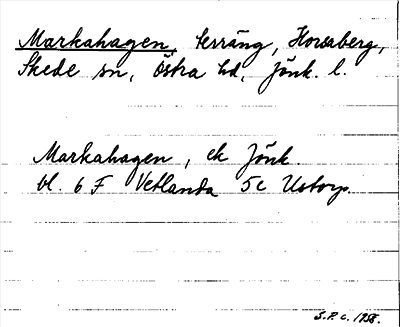 Markahagen, terräng, Horsaberg,
Skede sn, Östra hd, Jönk. l.
Markahagen, ek Jönk.
bl. 6 F Vetlanda 5c Ustorp.
S.F.C. 1958.